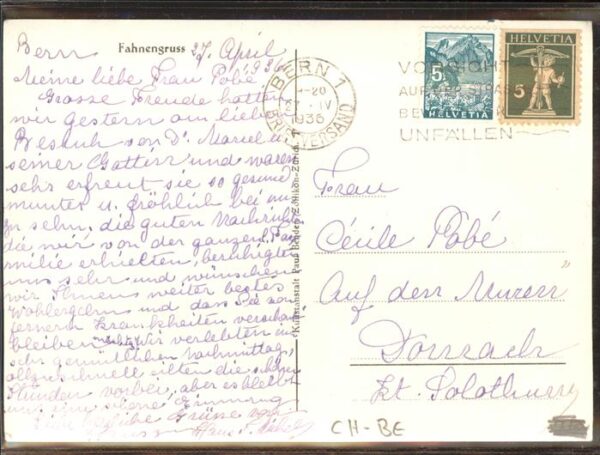 Fahnengruss
Bern 27. April
1936
Meine liebe Frau Pobé
Grosse Freude hatten
wir gestern am lieben
Besuch von Dr Marcel u
seiner Gattin und waren
sehr erfreut sie so gesund
munter u. fröhlich bei uns
zu sehn, die guten Nachricht
die wir von der ganzen Fa
milie erhielten, beruhigten
uns sehr und wünschen
wir Ihnen weiter bestes
Wohlergehn und das Sie von
fernern Krankheiten verschont
bleiben. Wir verlebten ein
sehr gemütlichen Nachmittag,
allzuschnell eilten die
Stunden vorbei, aber es bleibt
uns eine schöne Erinnerung
Grüsse von
Kunstanstalt Paul Bender, Zollikon-Zürich
BERN 1
-20
IV
1936
BRIEFVERSAND
VORSICHT
AUF DER STRASS
BE
UNFÄLLEN
5
HELVETIA
HELVETIA
5
Frau
Cécile Pobé
Auf den Muren
Dornach
Kt. Solothurn
CH-BE